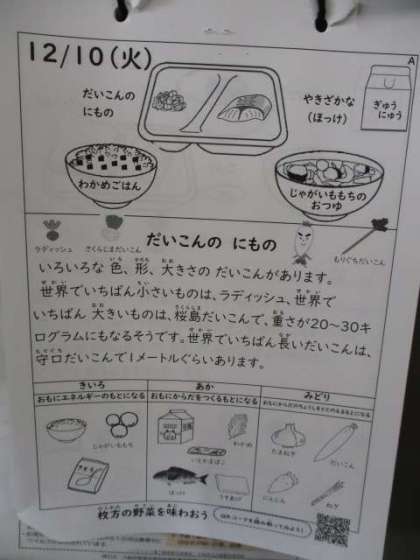 12/10(火)
A
だいこんの
にもの
やきざかな
(ほっけ)
ぎゅう
にゅう
わかめごはん
じゃがいももちの
おつゆ
ラディッシュ
さくらじまだいこん
だいこんの にもの
もりぐちだいこん
いろいろな 色、形、大きさの だいこんがあります。
世界でいちばん小さいものは、ラディッシュ、世界で
いちばん 大きいものは、桜島だいこんで、重さが20~30キ
ログラムにもなるそうです。世界でいちばん長いだいこんは、
守口だいこんで1メートルぐらいあります。
きいろ
あか
みどり
おもにエネルギーのもとになる
おもにからだをつくるもとになる
おもにからだのちょうしをととのえるもとになる
じゃがいももち
わかめ
いとかまぼこ
ほっけ
うすあげ
たまねぎ
だいこん
にんじん
ねぎ
枚方の野菜を味わおう